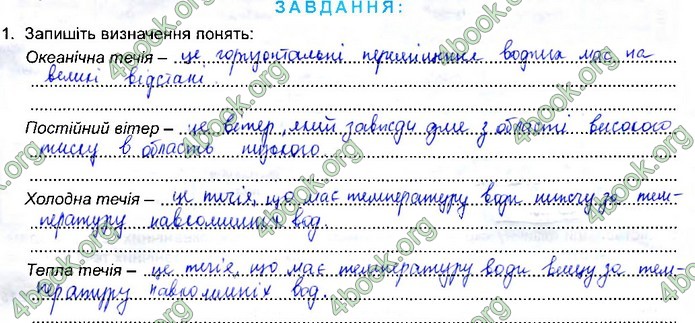 ЗАВДАННЯ:
1. Запишіть визначення понять:
Океанічна течія – це горизонтальні переміщення водних мас на
великі відстані
Постійний вітер – це ветер, який завжди дме з області високого
тиску в область низького.
Холодна течія – це течія, що має температуру води нижчу за тем-
пературу навколишніх вод.
Тепла течія – це течія, що має температуру води вищу за тем-
пературу навколишніх вод.
4book.org